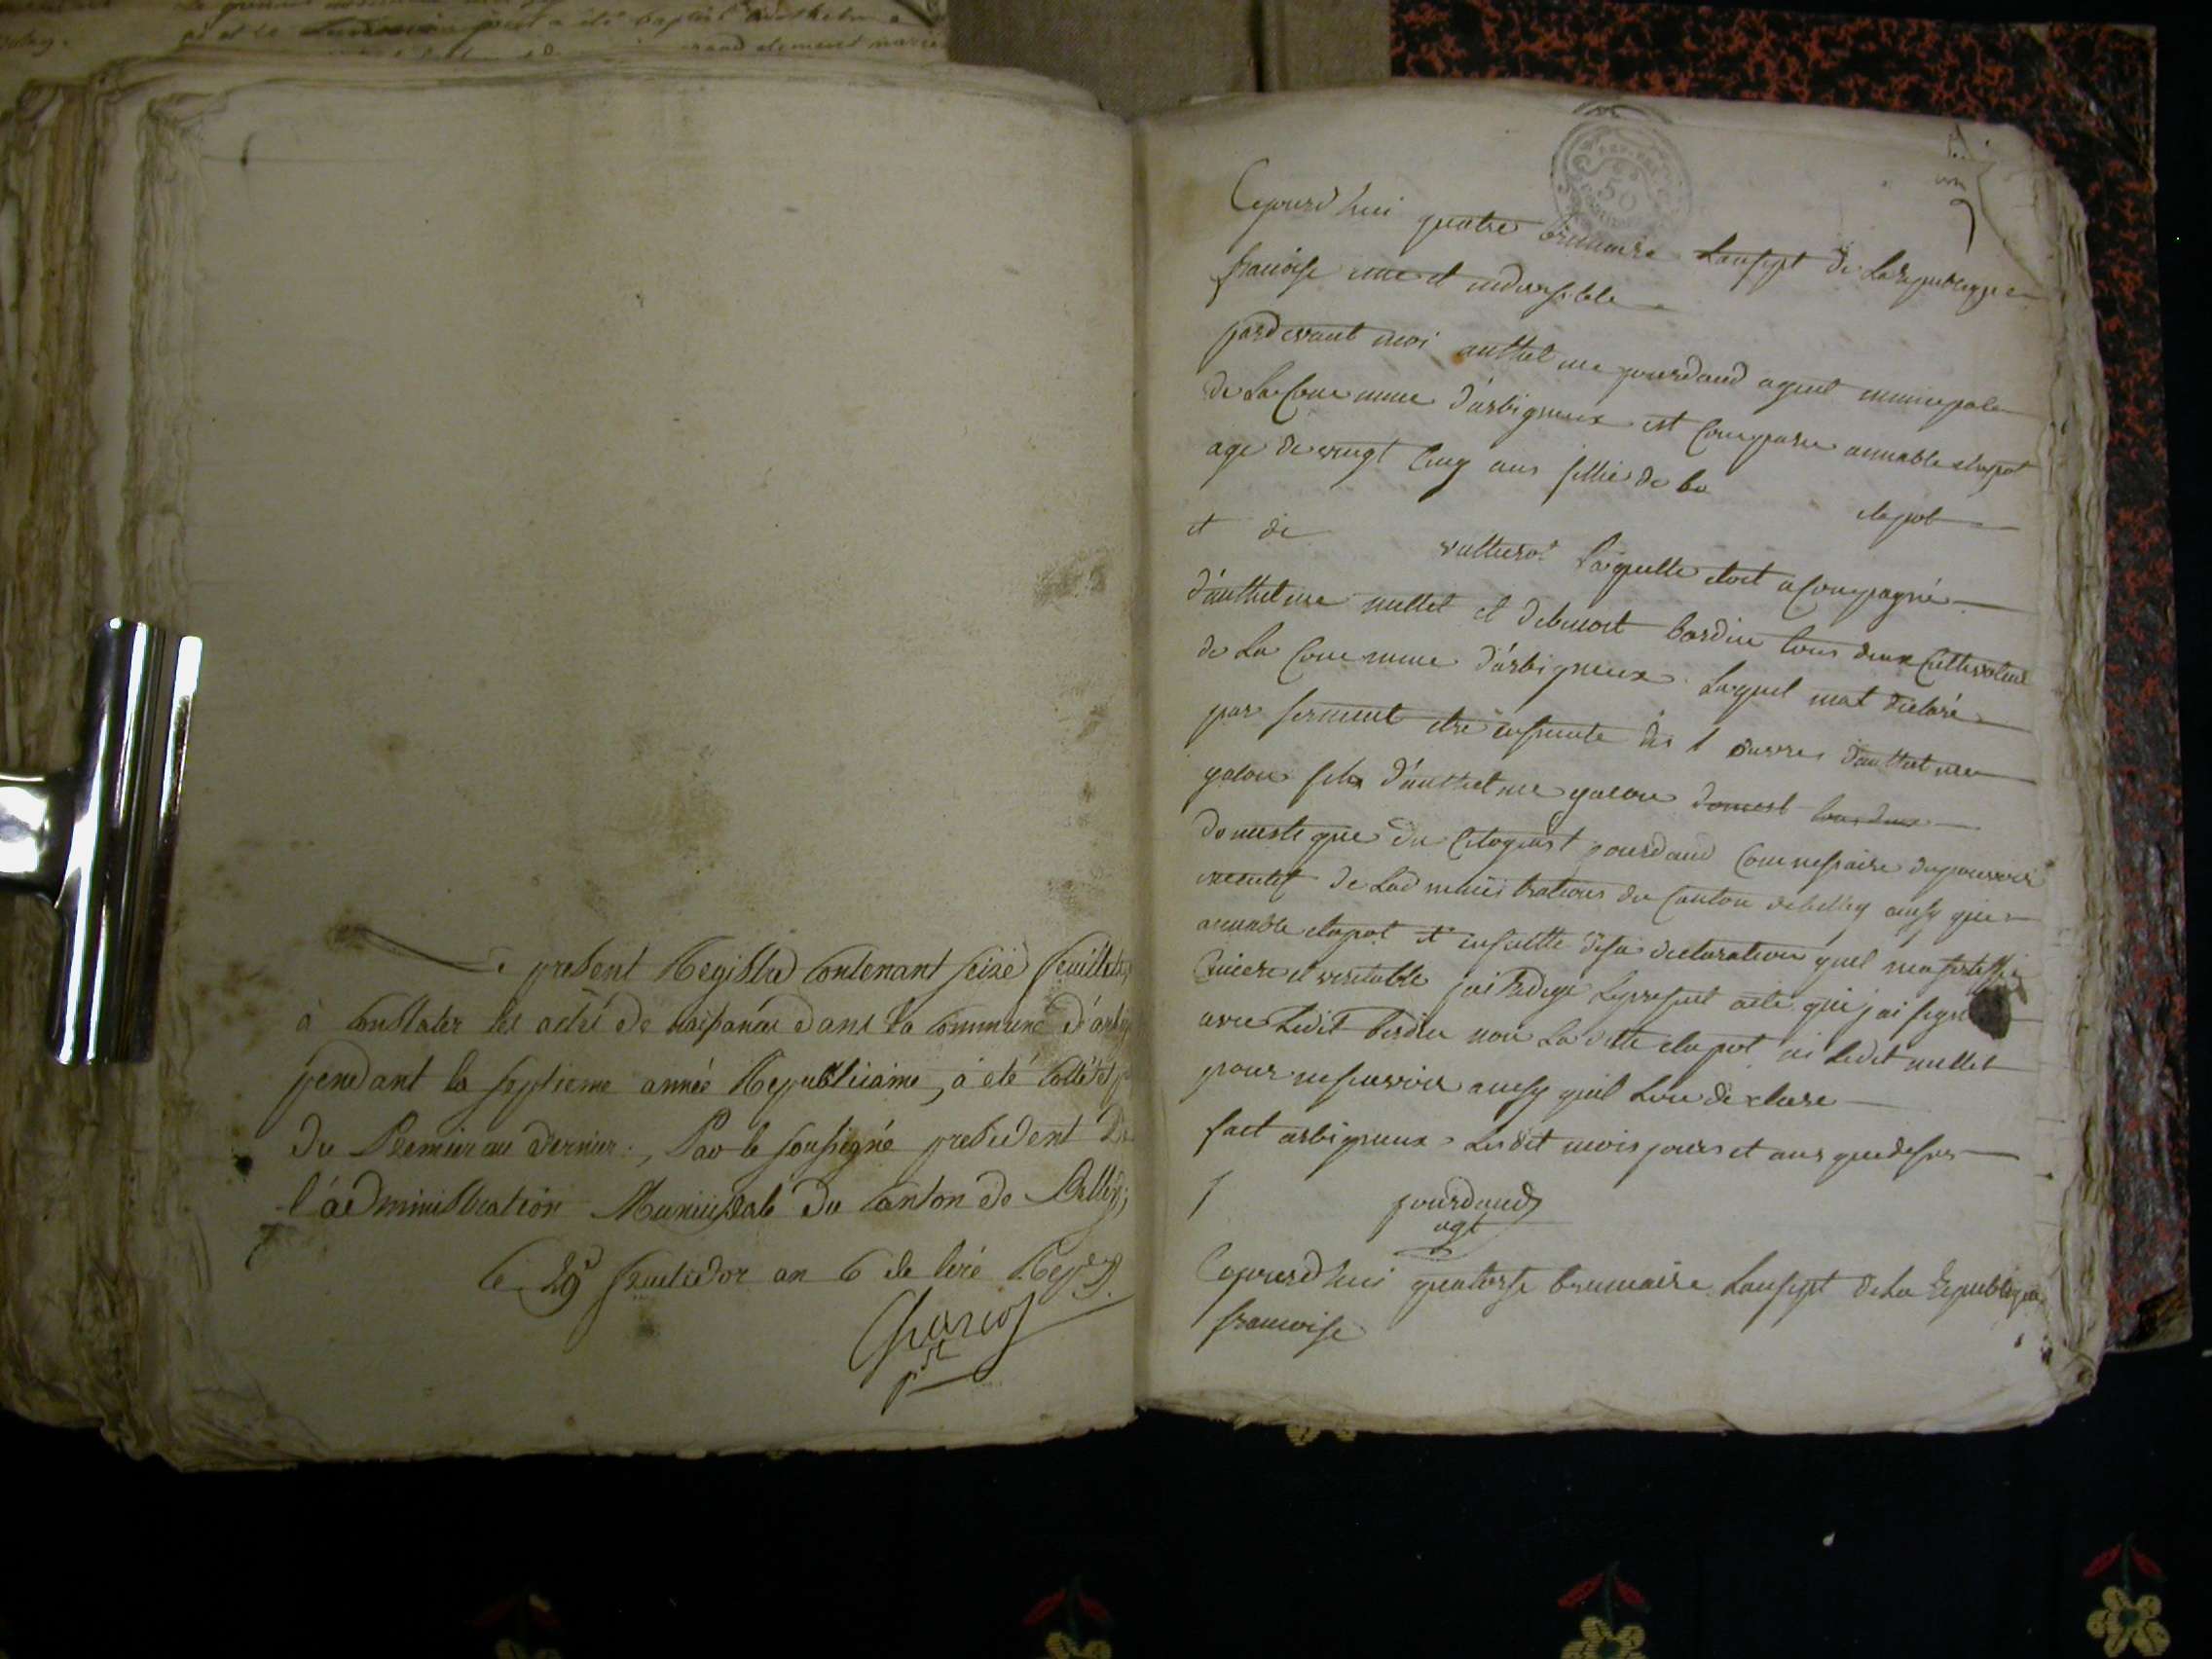 present Registre Contenant seize feuillets
à Constater les actes de naissances dans la Commune d'arb
pendant la septieme année Republicaine, a été Cotté et p
du Premier au dernier, Par le soussigné president De
l'administration Municipale du Canton de Belley;
le 29 fructidor an 6 de l'ère Rep.
50
Cejourd'hui quatre brumaire Lansept de La Republique
francoise une et indivisible
pardevant moi anthelme gourdand agent municipale
de La Commune d'arbignieux est Comparu aimable clapot
age de vingt Cinq ans fillie de feu clapot
et de Laquelle etoit acompagné
d'anthelme millet et bordin tous deux Cultivateur
de La Commune d'arbignieux. Laquel mat declaré
par serment etre enseinte des Euvres d'anthelme
galou fils d'anthelme galou domest tous deux
domestique du Citoyent gourdand Commissaire du pouvoir
executif de Ladministrations du Canton debelley ausy que
aimable clapot et ensuitte desa declaration quel ma sertiffie
Cincere et veritable jai Redigé Lepresent acte que jai signé
avec Ledit bordin non La ditte clapot ni Ledit millet
pour nesavoir ausy quil Lon declare
fact arbignieux Lesdit mois jours et ans que desus
gourdand
agt
Cejourd'hui quatorse brumaire Lansept de La Republique
francoise